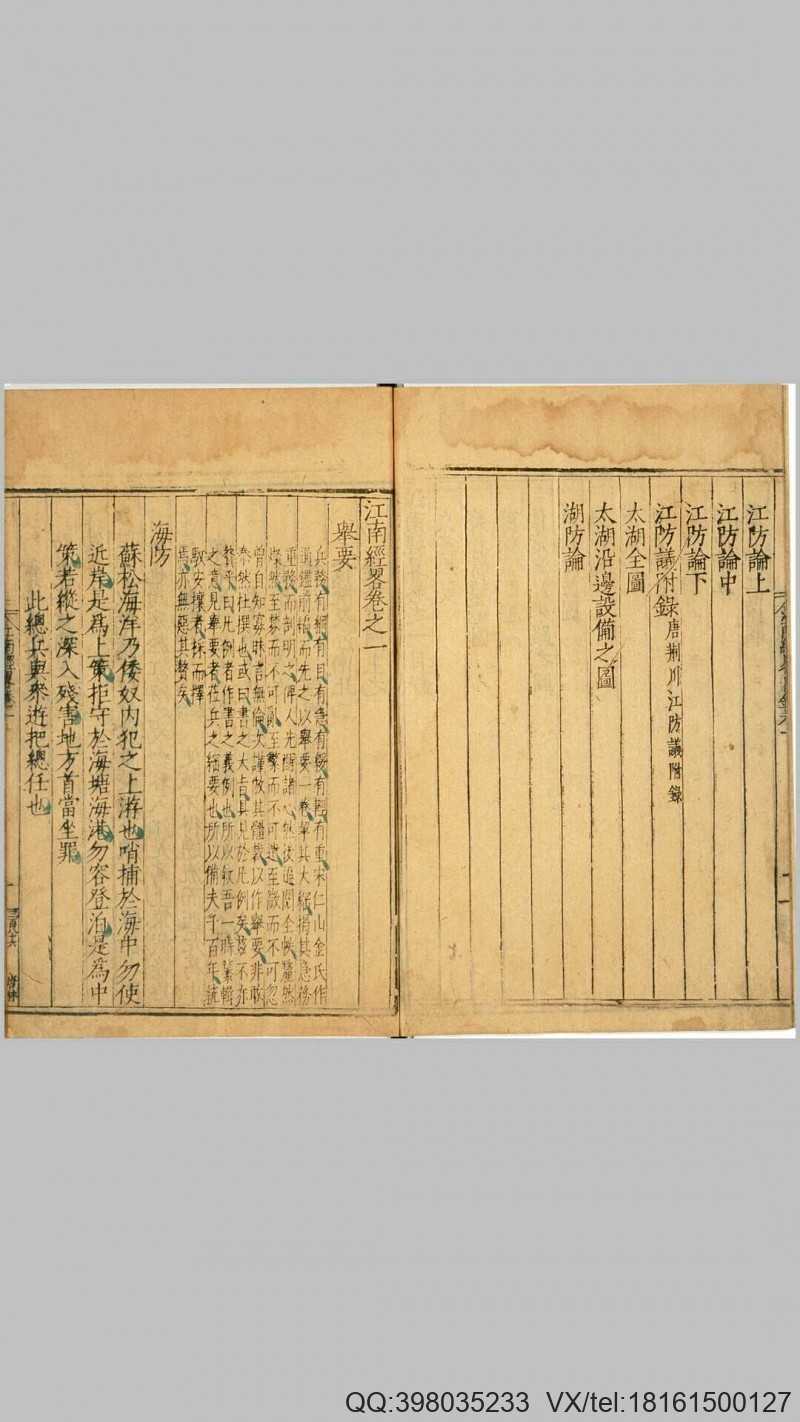 江防論上
江防論中
江防論下
江防議附錄唐荆川江防議附錄
太湖全圖
太湖沿邊設備之圖
湖防論
江南經畧卷之一
舉要
兵務有綱有目有急有緩有輕有重宋仁山金氏作
通鑑前編而先之以舉要一卷舉其大綱揭其急務
重務而剖明之俾人先醒諸心然後追閱全帙釐然
燦然至夥而不可亂至繁而不可遺至微而不可忽
曾自知寡昧言無倫次謹倣其體裁以作舉要非敢
泰然杜撰也或曰書之大旨具見於凡例矣茲不亦
贅乎曰凡例者作書之義例也所以叙吾一時纂輯
之意見舉要者莅兵之綱要也所以備夫千百年統
馭安攘者採而擇
焉亦無惡其贅矣
海防
蘇松海洋乃倭奴内犯之上游也哨捕於海中勿使
近岸是為上策拒守於海塘海港勿容登泊是為中
策若縱之深入殘害地方首當坐罪
此總兵與叅遊把總任也
QQ:398035233 VX/tel:18161500127